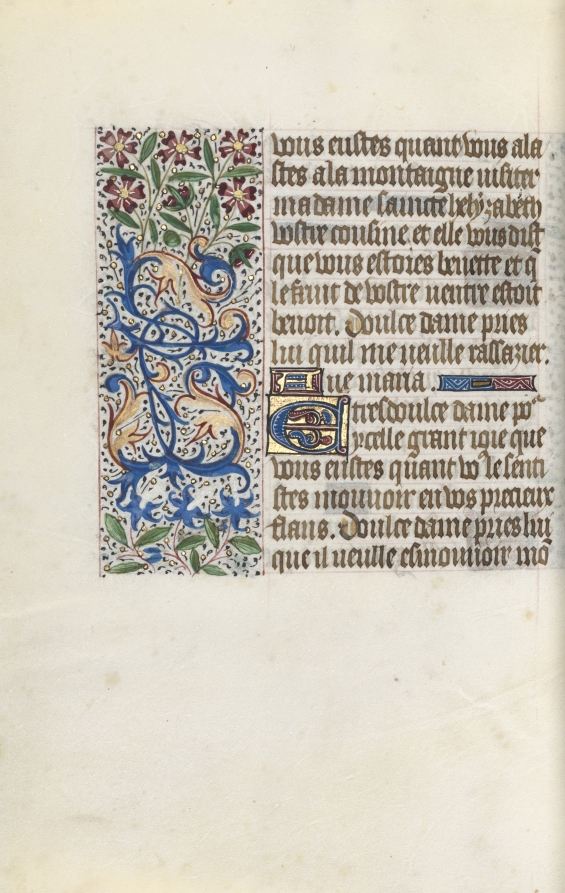 vous eustes quant vous ala
stes a la montaigne visiter
madame saincte helyzabeth
vostre cousine et elle vous dist
que vous estoies benette et q̄
le fruit de vostre ventre estoit
benoit. Doulce dame pries
lui quil me veulle rassazier.
Aue maria.
Et tresdoulce dame po᷑
ycelle grant ioie que
vous eustes quant vo᷒ le senti
stes mouuoir en vos precieux
flans. Doulce dame pries lui
que il veulle esmouuoir mō